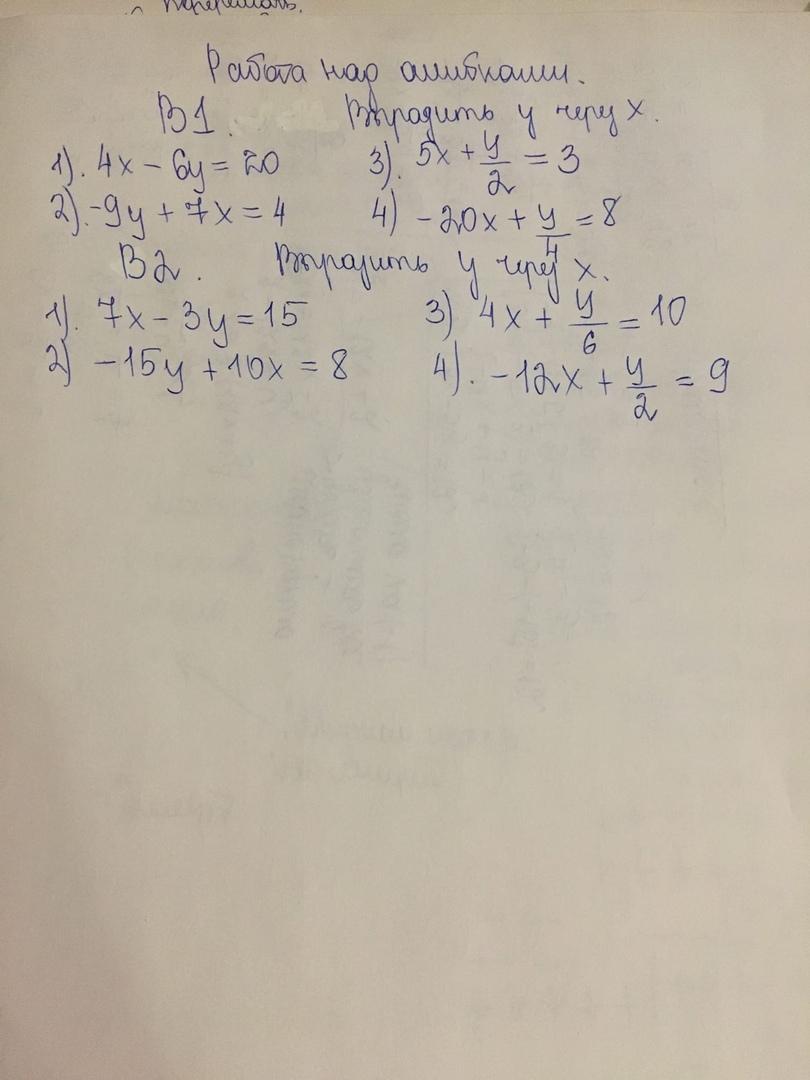 Работа над ошибками.
В1. Выразить y через x.
1). 4x - 6y = 20 3). 5x + y/2 = 3
2). -9y + 7x = 4 4) -20x + y/4 = 8
В2. Выразить y через x.
1). 7x - 3y = 15 3) 4x + y/6 = 10
2) -15y + 10x = 8 4). -12x + y/2 = 9